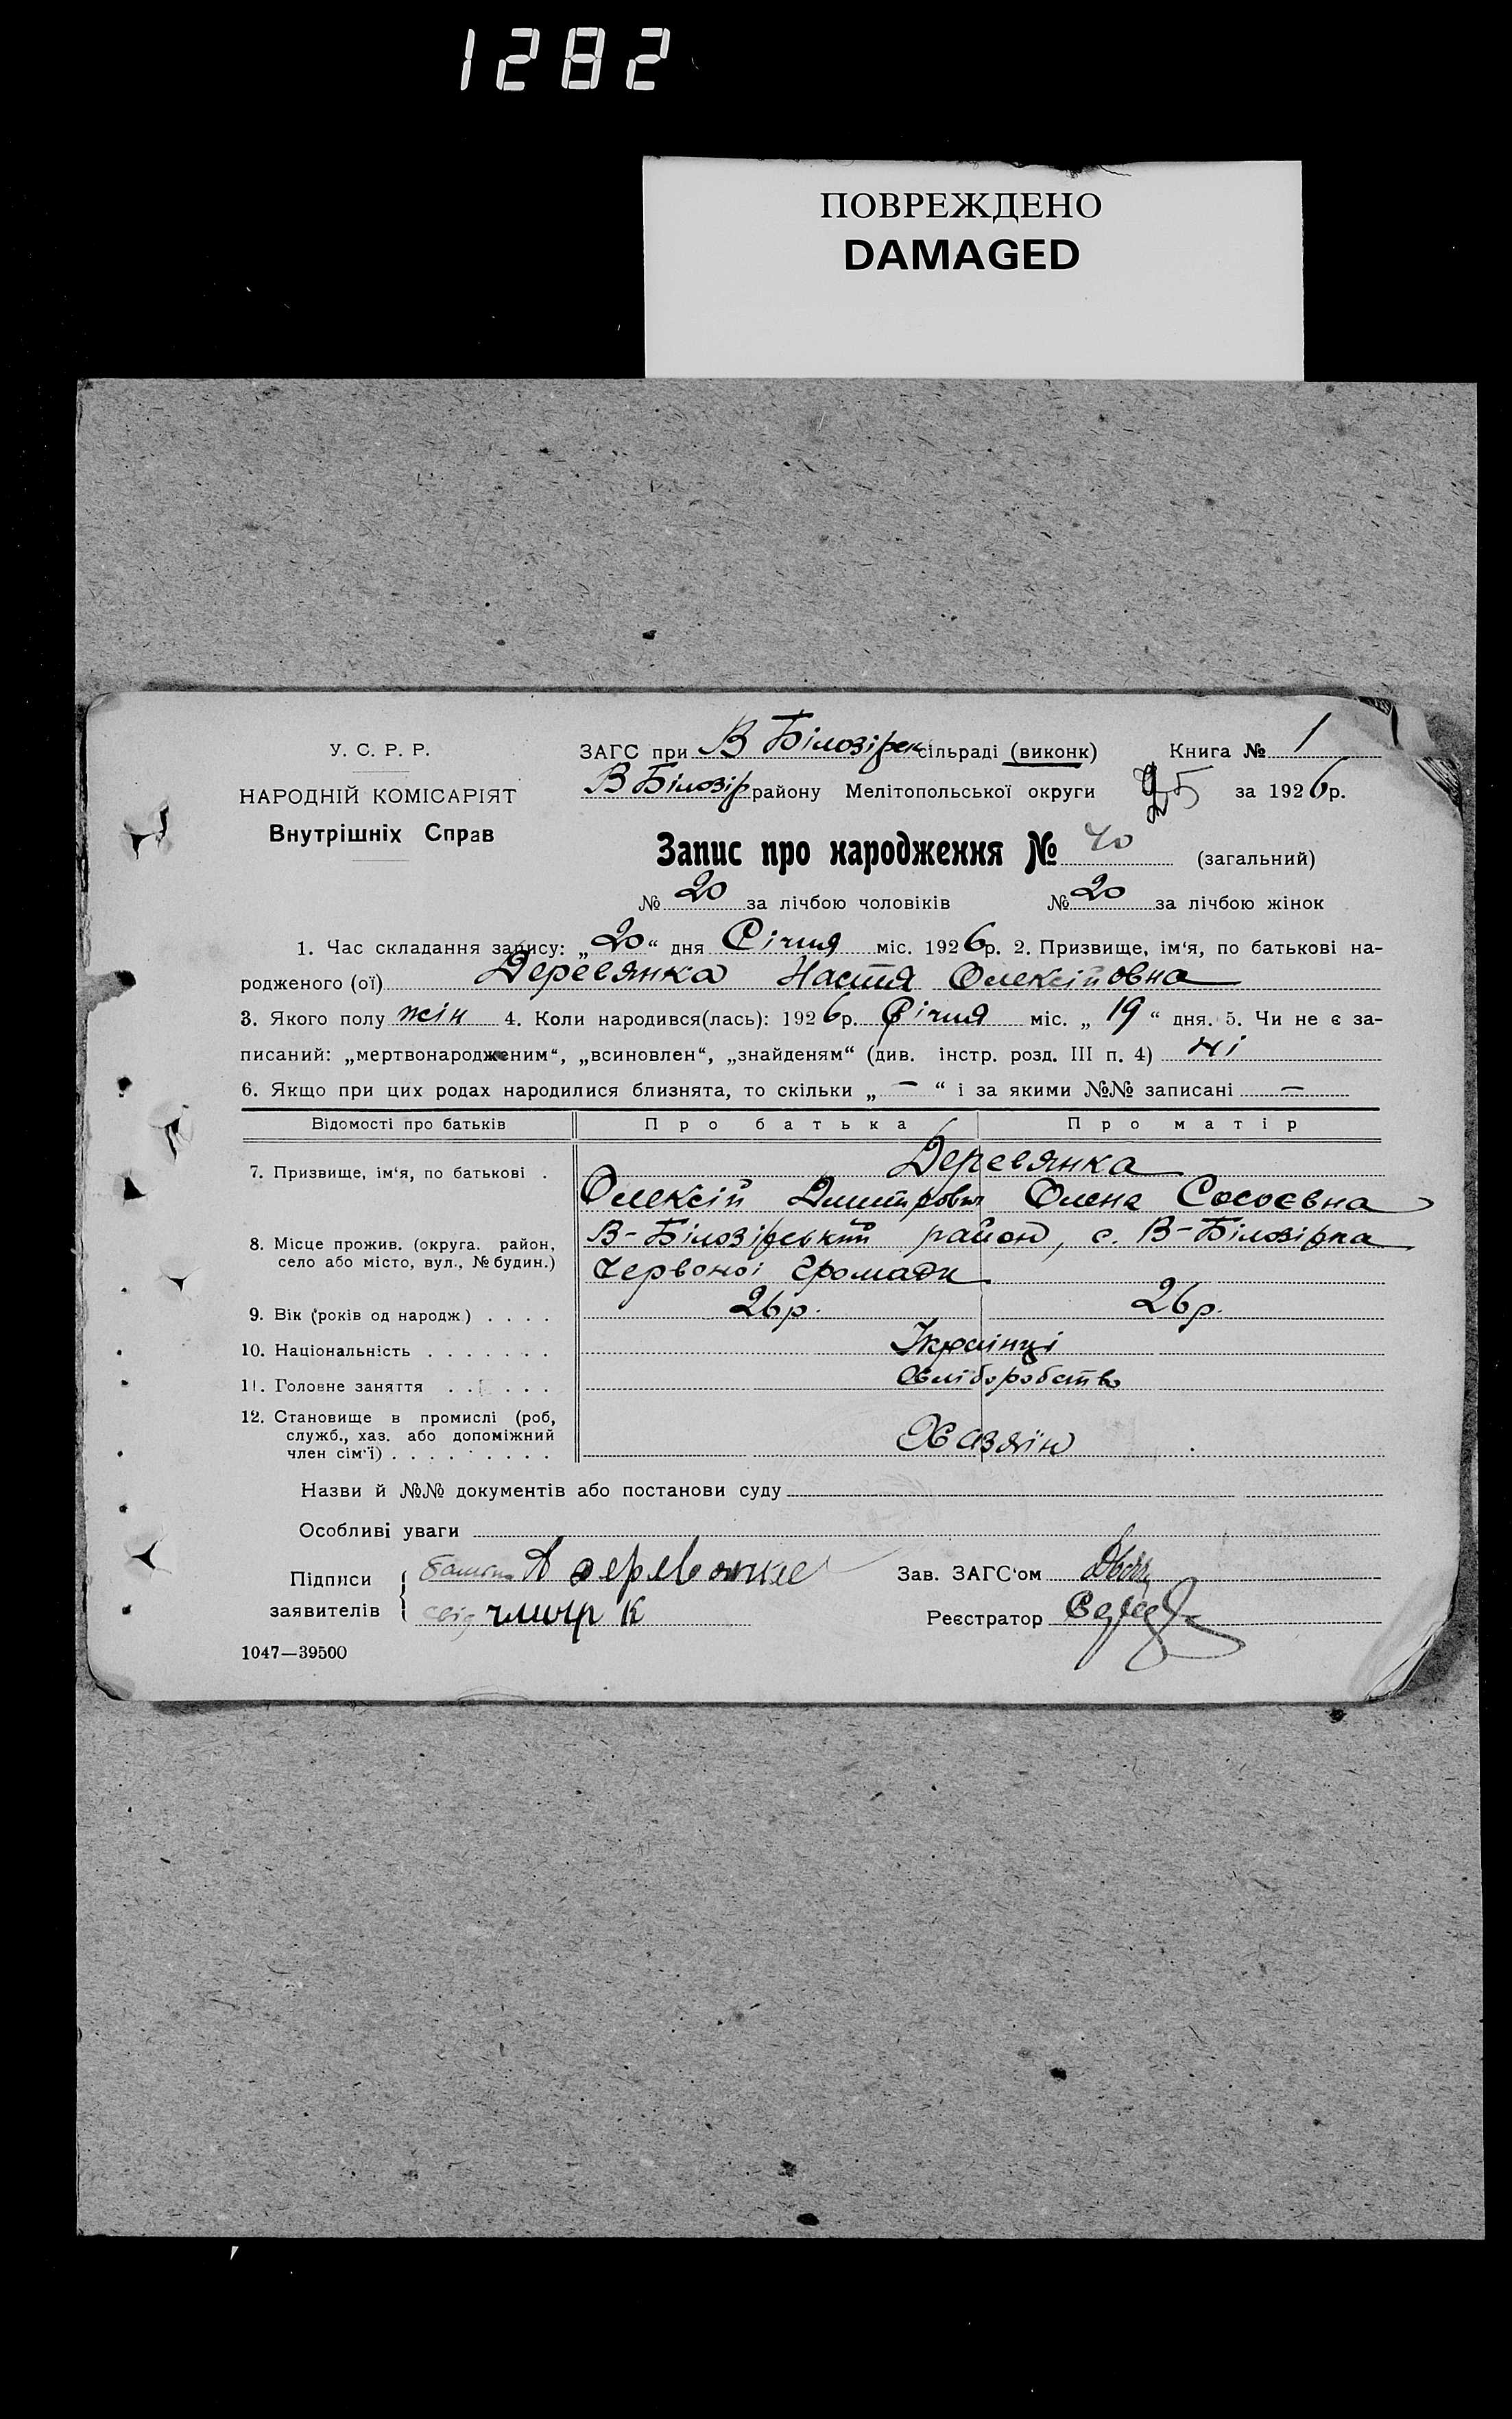 1282
ПОВРЕЖДЕНО
DAMAGED
У. С. Р. Р.
НАРОДНІЙ КОМІСАРІЯТ
Внутрішніх Справ
ЗАГС при В Білозірск сільраді (виконк) Книга № 1
В Білозір району Мелітопольської округи 25 за 1926р.
Запис про народження № 40 (загальний)
№ 20 за лічбою чоловіків № 20 за лічбою жінок
1. Час складання запису: „20“ дня Січня міс. 1926р. 2. Призвище, ім‘я, по батькові на-
родженого (ої) Деревянка Настя Олексійовна
3. Якого полу жін 4. Коли народився(лась): 1926р. Січня міс. „19“ дня. 5. Чи не є за-
писаний: „мертвонародженим“, „всиновлен“, „знайденям“ (див. інстр. розд. III п. 4) ні
6. Якщо при цих родах народилися близнята, то скільки „ — “ і за якими №№ записані —
Відомості про батьків Про батька Про матір
7. Призвище, ім‘я, по батькові . Деревянка
Олексій Дмитрович Олена Сосоєвна
8. Місце прожив. (округа. район, село або місто, вул., № будин.) В-Білозірський район, с. В-Білозірка
Червоної Громади
9. Вік (років од народж) . . . . 26р. 26р.
10. Національність . . . . . . . Українці
11. Головне заняття . . . . . Хліборобство
12. Становище в промислі (роб,
служб., хаз. або допоміжний
член сім‘ї) . . . . . . . . . Хазяїн
Назви й №№ документів або постанови суду
Особливі уваги
Підписи заявителів А деревянке
Зав. ЗАГС‘ом
Реєстратор
1047—39500